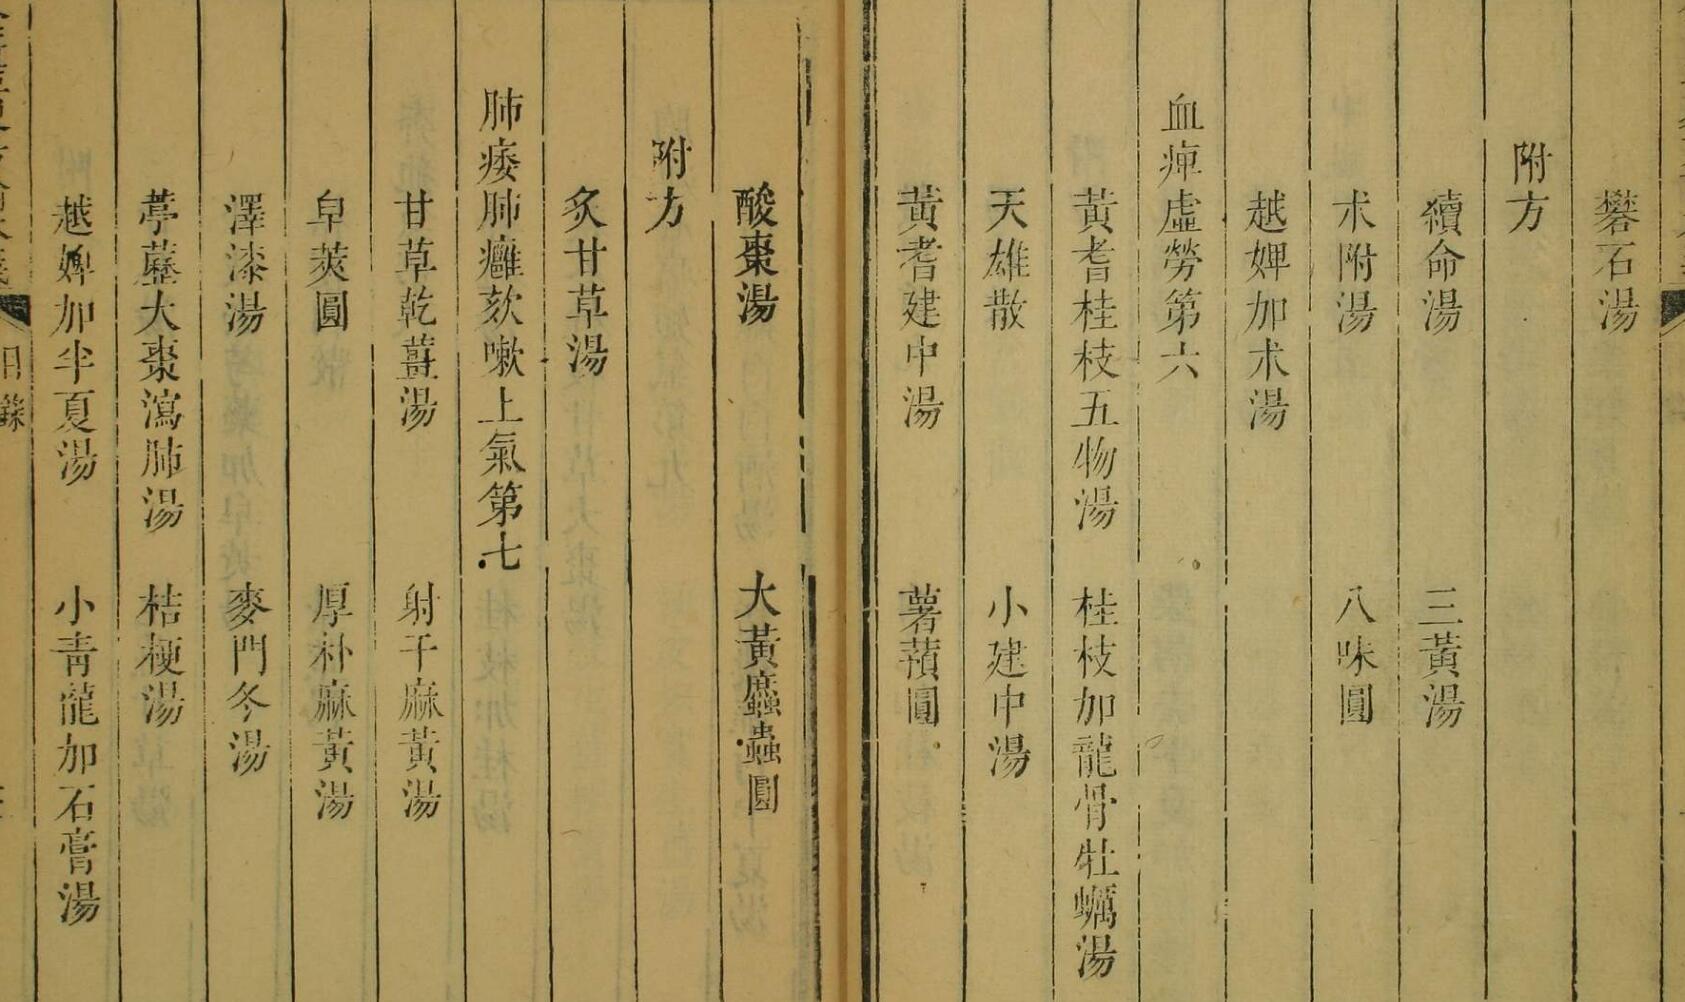 礬石湯
附方
續命湯 三黃湯
朮附湯 八味圓
越婢加朮湯
血痺虛勞第六
黃耆桂枝五物湯 桂枝加龍骨牡蠣湯
天雄散 小建中湯
黃耆建中湯 薯蕷圓
酸棗湯 大黃䗪蟲圓
附方
炙甘草湯
肺痿肺癰欬嗽上氣第七
甘草乾薑湯 射干麻黃湯
皁莢圓 厚朴麻黃湯
澤漆湯 麥門冬湯
葶藶大棗瀉肺湯 桔梗湯
越婢加半夏湯 小青龍加石膏湯
目錄